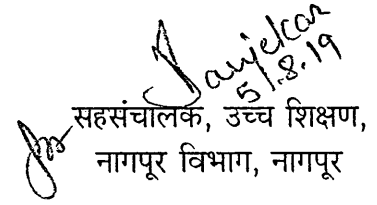 5/.8.19
सहसंचालक, उच्च शिक्षण,
नागपूर विभाग, नागपूर